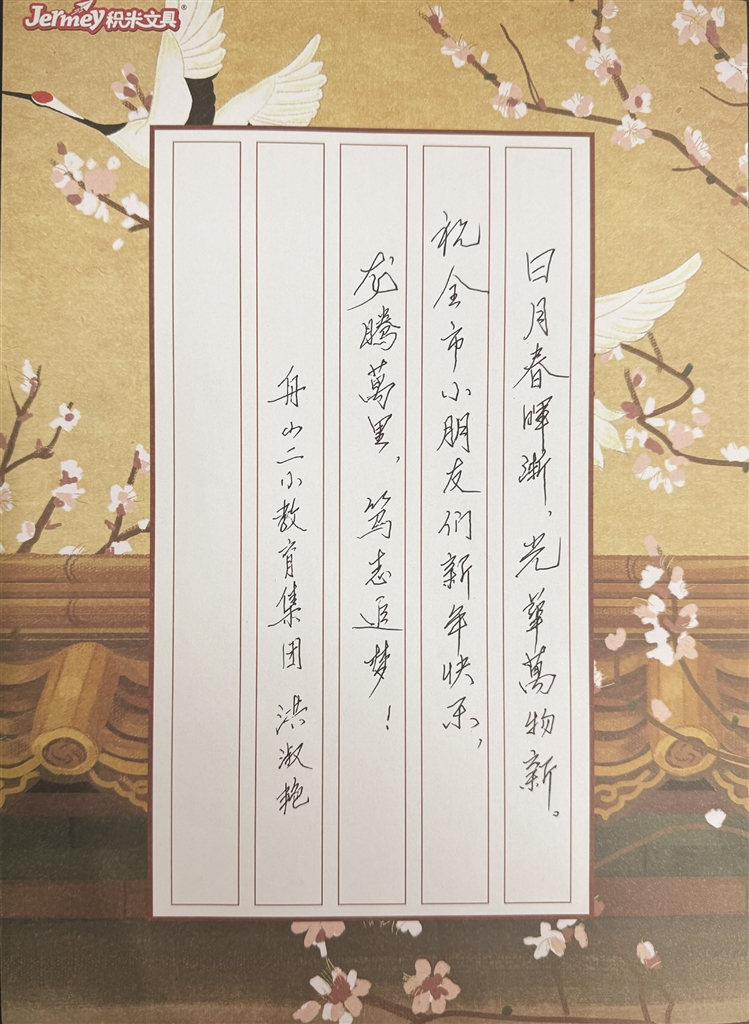 Jermey积米文具®
日月春暉漸，光華萬物新。
祝全市小朋友们新年快乐，
龙腾萬里，笃志追梦！
舟山二小教育集团 洪淑艳